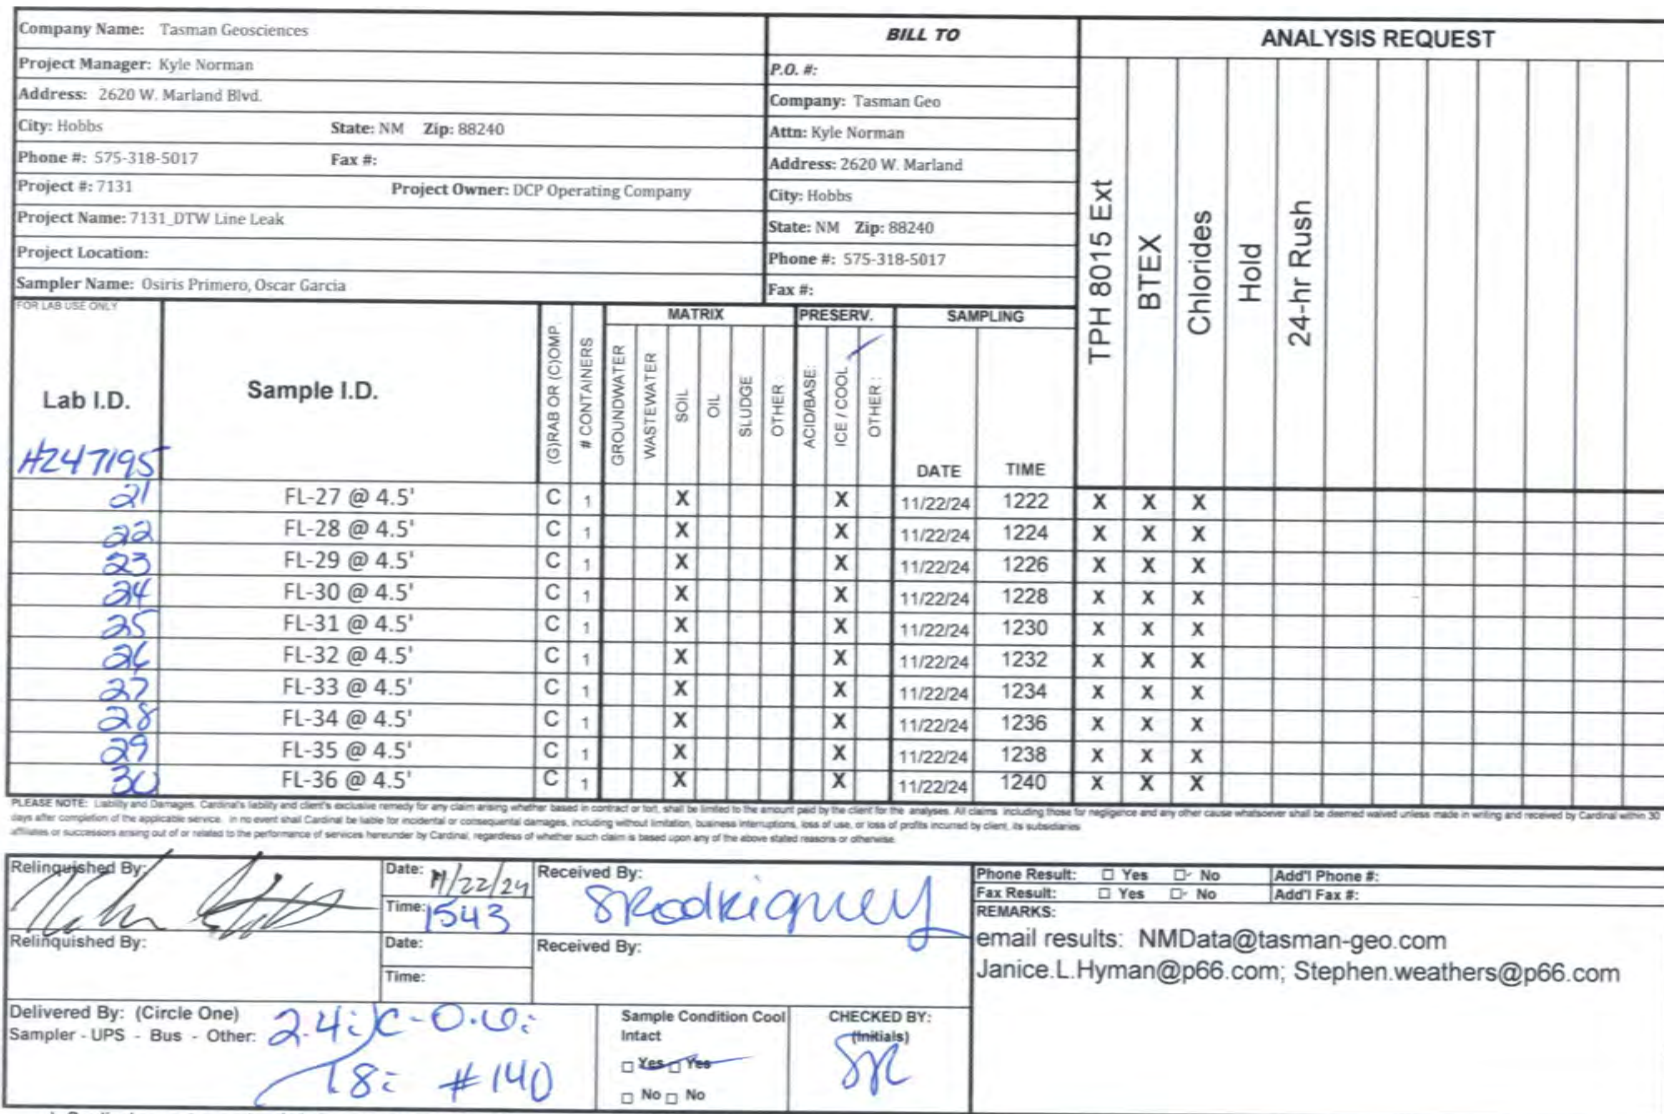 Company Name: Tasman Geosciences
BILL TO
ANALYSIS REQUEST
Project Manager: Kyle Norman
P.O. #:
Address: 2620 W. Marland Blvd.
Company: Tasman Geo
City: Hobbs State: NM Zip: 88240
Attn: Kyle Norman
Phone #: 575-318-5017 Fax #:
Address: 2620 W. Marland
Project #: 7131 Project Owner: DCP Operating Company
City: Hobbs
Project Name: 7131_DTW Line Leak
State: NM Zip: 88240
Project Location:
Phone #: 575-318-5017
Sampler Name: Osiris Primero, Oscar Garcia
Fax #:
TPH 8015 Ext
BTEX
Chlorides
Hold
24-hr Rush
FOR LAB USE ONLY
MATRIX PRESERV. SAMPLING
Lab I.D.
Sample I.D.
(G)RAB OR (C)OMP.
# CONTAINERS
GROUNDWATER
WASTEWATER
SOIL
OIL
SLUDGE
OTHER :
ACID/BASE:
ICE / COOL
OTHER :
DATE TIME
H247195
21 FL-27 @ 4.5' C 1 X X 11/22/24 1222 X X X
22 FL-28 @ 4.5' C 1 X X 11/22/24 1224 X X X
23 FL-29 @ 4.5' C 1 X X 11/22/24 1226 X X X
24 FL-30 @ 4.5' C 1 X X 11/22/24 1228 X X X
25 FL-31 @ 4.5' C 1 X X 11/22/24 1230 X X X
26 FL-32 @ 4.5' C 1 X X 11/22/24 1232 X X X
27 FL-33 @ 4.5' C 1 X X 11/22/24 1234 X X X
28 FL-34 @ 4.5' C 1 X X 11/22/24 1236 X X X
29 FL-35 @ 4.5' C 1 X X 11/22/24 1238 X X X
30 FL-36 @ 4.5' C 1 X X 11/22/24 1240 X X X
PLEASE NOTE: Liability and Damages. Cardinal's liability and client's exclusive remedy for any claim arising whether based in contract or tort, shall be limited to the amount paid by the client for the analyses. All claims including those for negligence and any other cause whatsoever shall be deemed waived unless made in writing and received by Cardinal within 30
days after completion of the applicable service. In no event shall Cardinal be liable for incidental or consequental damages, including without limitation, business interruptions, loss of use, or loss of profits incurred by client, its subsidiaries
affiliates or successors arising out of or related to the performance of services hereunder by Cardinal, regardless of whether such claim is based upon any of the above stated reasons or otherwise.
Relinquished By:
Date: 11/22/24
Time: 1543
Received By:
SRodriguez
Phone Result: Yes No Add'l Phone #:
Fax Result: Yes No Add'l Fax #:
REMARKS:
email results: NMData@tasman-geo.com
Janice.L.Hyman@p66.com; Stephen.weathers@p66.com
Relinquished By:
Date:
Time:
Received By:
Delivered By: (Circle One)
Sampler - UPS - Bus - Other:
#140
Sample Condition Cool
Intact
Yes Yes
No No
CHECKED BY:
(Initials)
SR